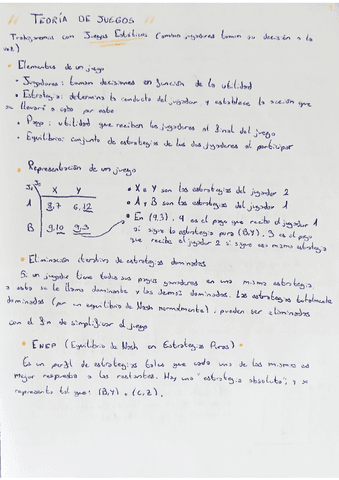 " TEORÍA DE JUEGOS "
Trabajaremos con Juegos Estáticos (ambos jugadores toman su decisión a la
vez)
• Elementos de un juego
• Jugadores: toman decisiones en función de la utilidad
• Estrategia: determina la conducta del jugador y establece la acción que
se llevará a cabo por este
• Pago: utilidad que reciben los jugadores al final del juego
• Equilibrio: conjunto de estrategias de los dos jugadores al participar
• Representación de un juego
J1 J2 X Y
A 8,7 6,12
B 9,10 9,3
• X e Y son las estrategias del jugador 2
• A y B son las estrategias del jugador 1
• En (9,3), 9 es el pago que recibe el jugador 1
si sigue la estrategia pura (B,Y). 3 es el pago
que recibe el jugador 2 si sigue esa misma estrategia
• Eliminación iterativa de estrategias dominadas
Si un jugador tiene todos sus pagos ganadores en una misma estrategia,
a esta se le llama dominante y las demás dominadas. Las estrategias totalmente
dominadas (por un equilibrio de Nash normalmente), pueden ser eliminadas
con el fin de simplificar el juego
• ENEP (Equilibrio de Nash en Estrategias Puras) •
Es un perfil de estrategias tales que cada una de las mismas es
mejor respuesta a las restantes. Hay una "estrategia absoluta", y se
representa tal que: (B,Y) + (C,Z).